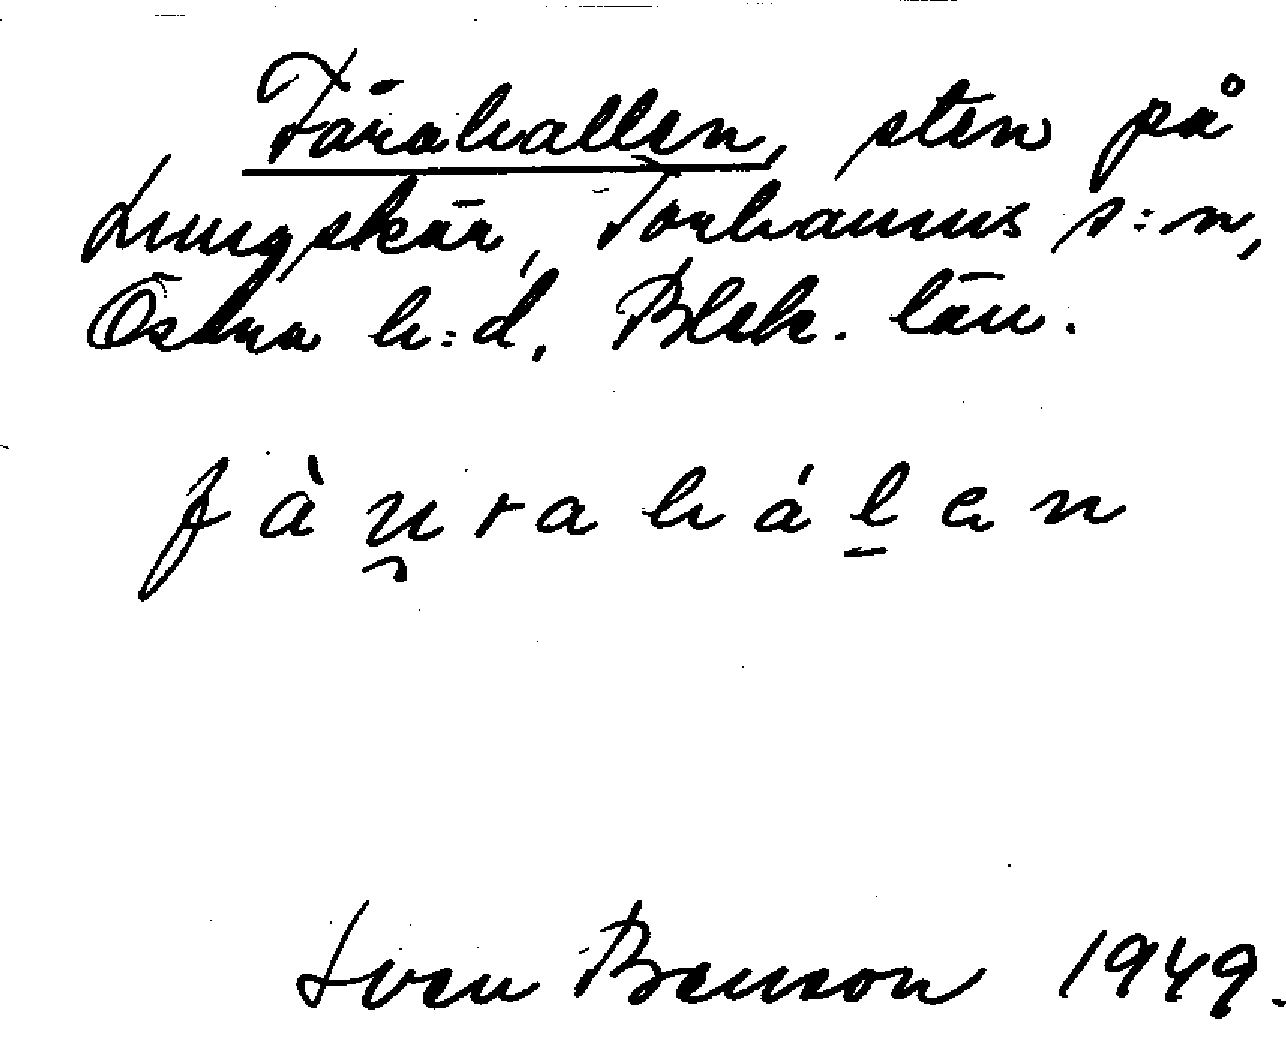 Fårahallen, sten på
Lungskär, Torhamns s:n,
Östra h:d, Blek. län.
fàu̯rahál̠en
Sven Benson 1949.